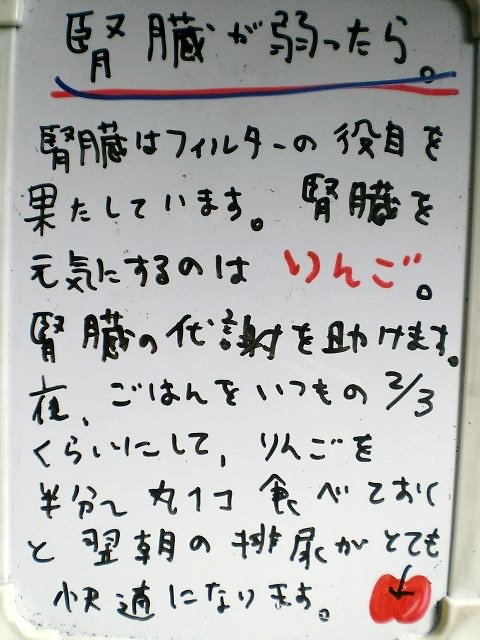 腎臓が弱ったら。
腎臓はフィルターの役目を
果たしています。腎臓を
元気にするのはりんご。
腎臓の代謝を助けます。
夜、ごはんをいつもの2/3
くらいにして、りんごを
半分〜丸1コ食べておく
と翌朝の排尿がとても
快適になります。